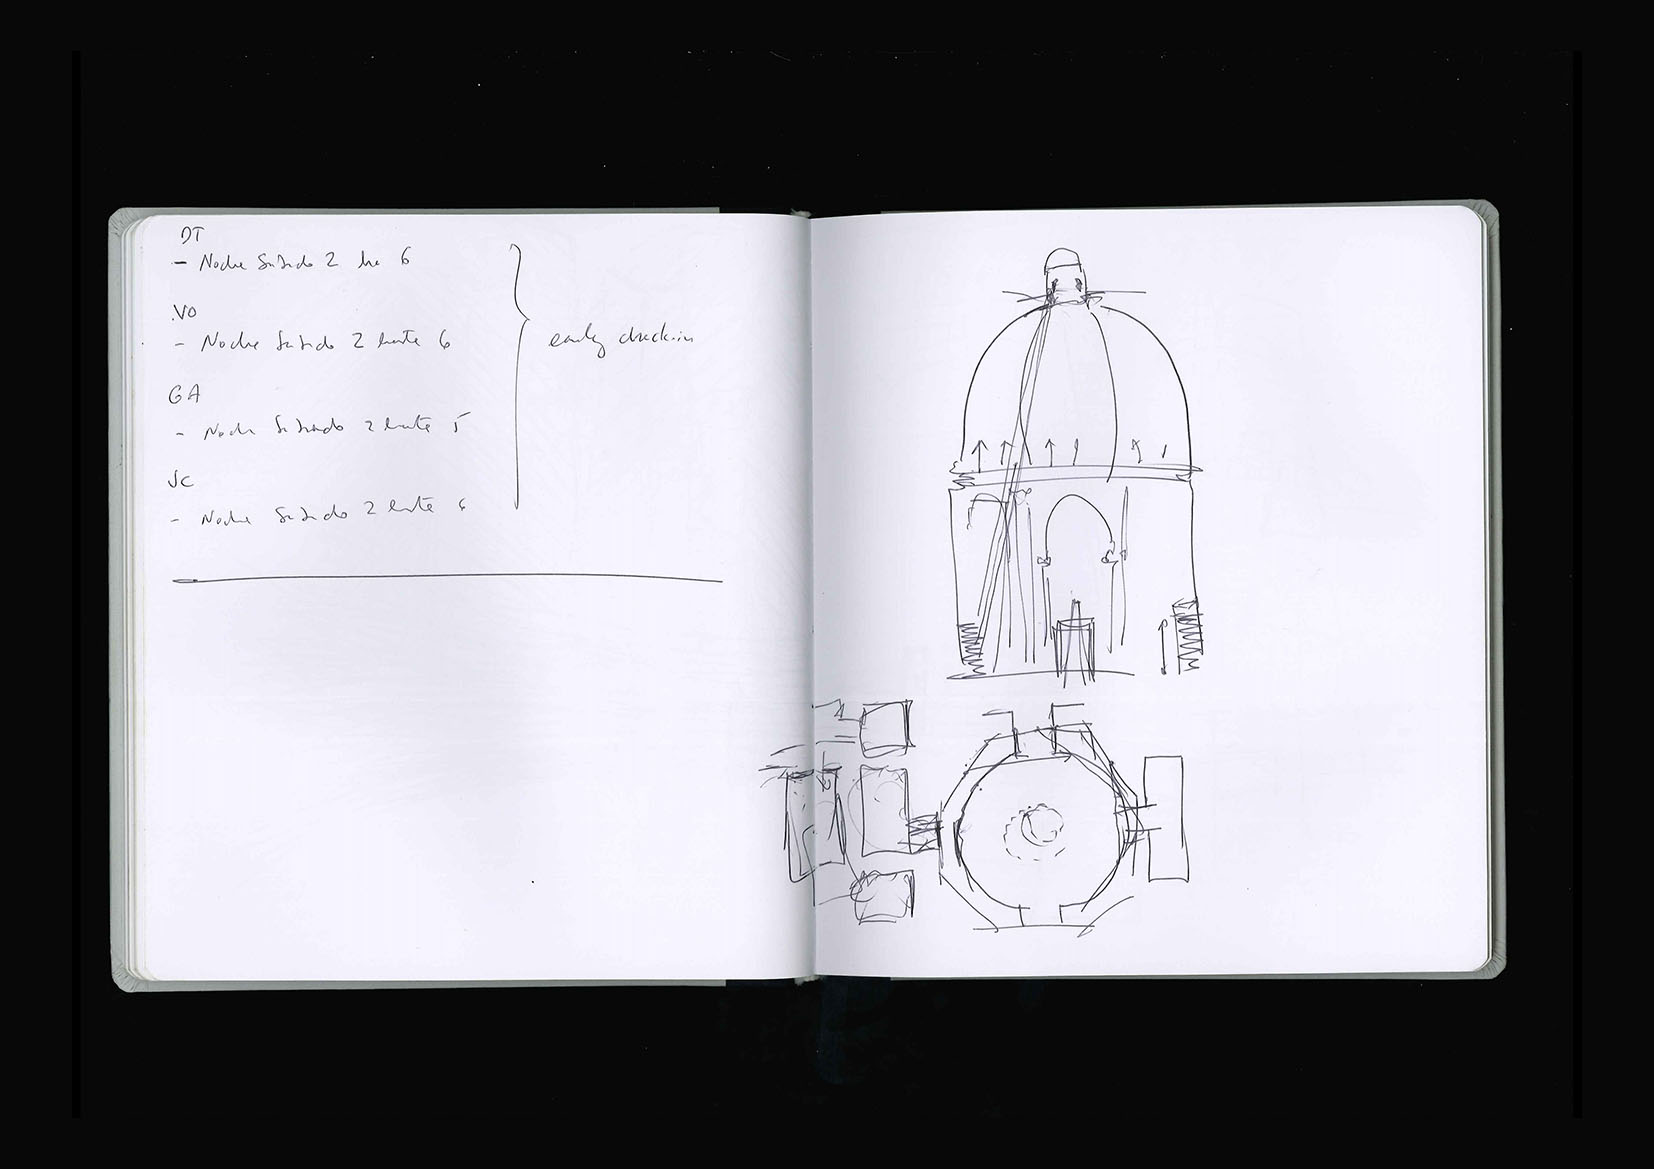 DT
- Noche Sábado 2 6
VO
- Noche Sábado 2 hasta 6
GA
- Noche Sábado 2 hasta 5
JC
- Noche Sábado 2 hasta 6
early check-in